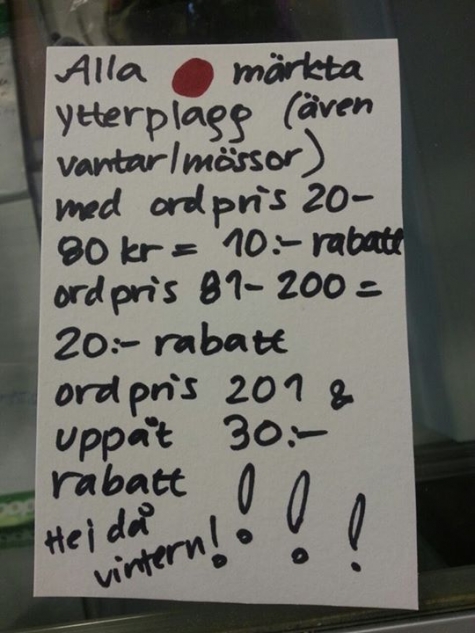 Alla märkta
ytterplagg (även
vantar/mössor)
med ordpris 20-
80 kr = 10:- rabatt
ordpris 81-200 =
20:- rabatt
ordpris 201 &
uppåt 30:-
rabatt !!!
Hej då
vintern!